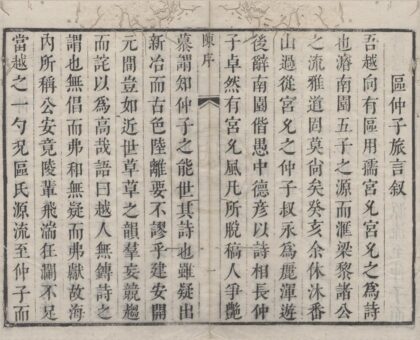 區仲子旅言叙
吾越向有區用孺宮允宮允之為詩
也濬南園五子之源而滙梁黎諸公
之流雅道罔莫尚矣癸亥余休沐番
山過從宮允之仲子叔永為麗渾遊
後辭南園偕愚中德彦以詩相長仲
子卓然有宮允風凡所脫稿人爭艷
陳序
慕謂知仲子之能世其詩也雖疑出
新冶而古色陸離要不謬乎建安開
元間豈如近世草草之韻羣妄競趨
而詫以為高哉語曰越人無鏄詩之
謂也無倡而弗和無疑而弗獻故海
內所稱公安竟陵輩飛湍狂瀾不足
當越之一勺況區氏源流至仲子而